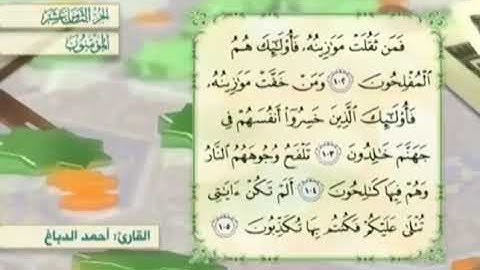 الجزء الثامن عشر
المؤمنون
فَمَن ثَقُلَتْ مَوَٰزِينُهُۥ فَأُو۟لَـٰٓئِكَ هُمُ
ٱلْمُفْلِحُونَ ١٠٢ وَمَنْ خَفَّتْ مَوَٰزِينُهُۥ
فَأُو۟لَـٰٓئِكَ ٱلَّذِينَ خَسِرُوٓا۟ أَنفُسَهُمْ فِى
جَهَنَّمَ خَـٰلِدُونَ ١٠٣ تَلْفَحُ وُجُوهَهُمُ ٱلنَّارُ
وَهُمْ فِيهَا كَـٰلِحُونَ ١٠٤ أَلَمْ تَكُنْ ءَايَـٰتِى
تُتْلَىٰ عَلَيْكُمْ فَكُنتُم بِهَا تُكَذِّبُونَ ١٠٥
القارئ: أحمد الدباغ